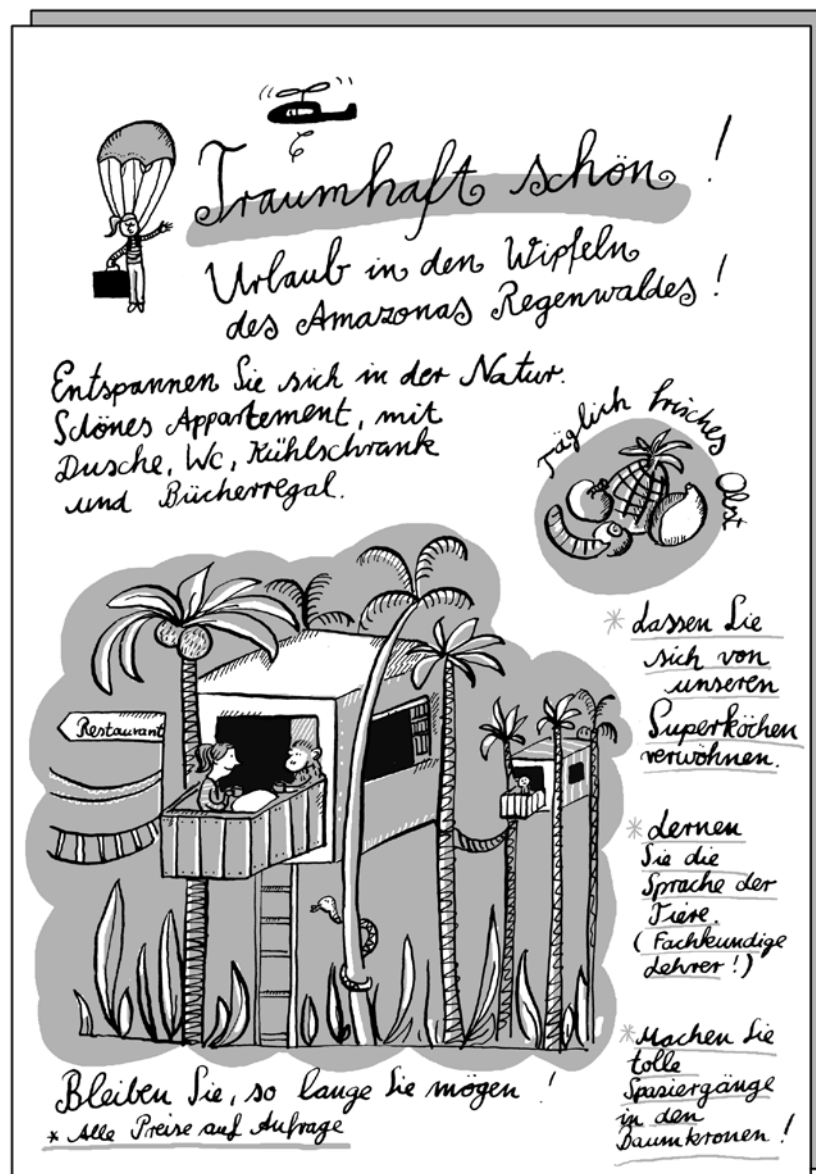 Traumhaft schön!
Urlaub in den Wipfeln
des Amazonas Regenwaldes!
Entspannen Sie sich in der Natur.
Schönes Appartement, mit
Dusche, Wc, Kühlschrank
und Bücherregal.
Täglich frisches Obst
Restaurant
* Lassen Sie
sich von
unseren
Superköchen
verwöhnen.
* Lernen
Sie die
Sprache der
Tiere.
(Fachkundige
Lehrer!)
* Machen Sie
tolle
Spaziergänge
in den
Baumkronen!
Bleiben Sie, so lange Sie mögen!
* Alle Preise auf Anfrage